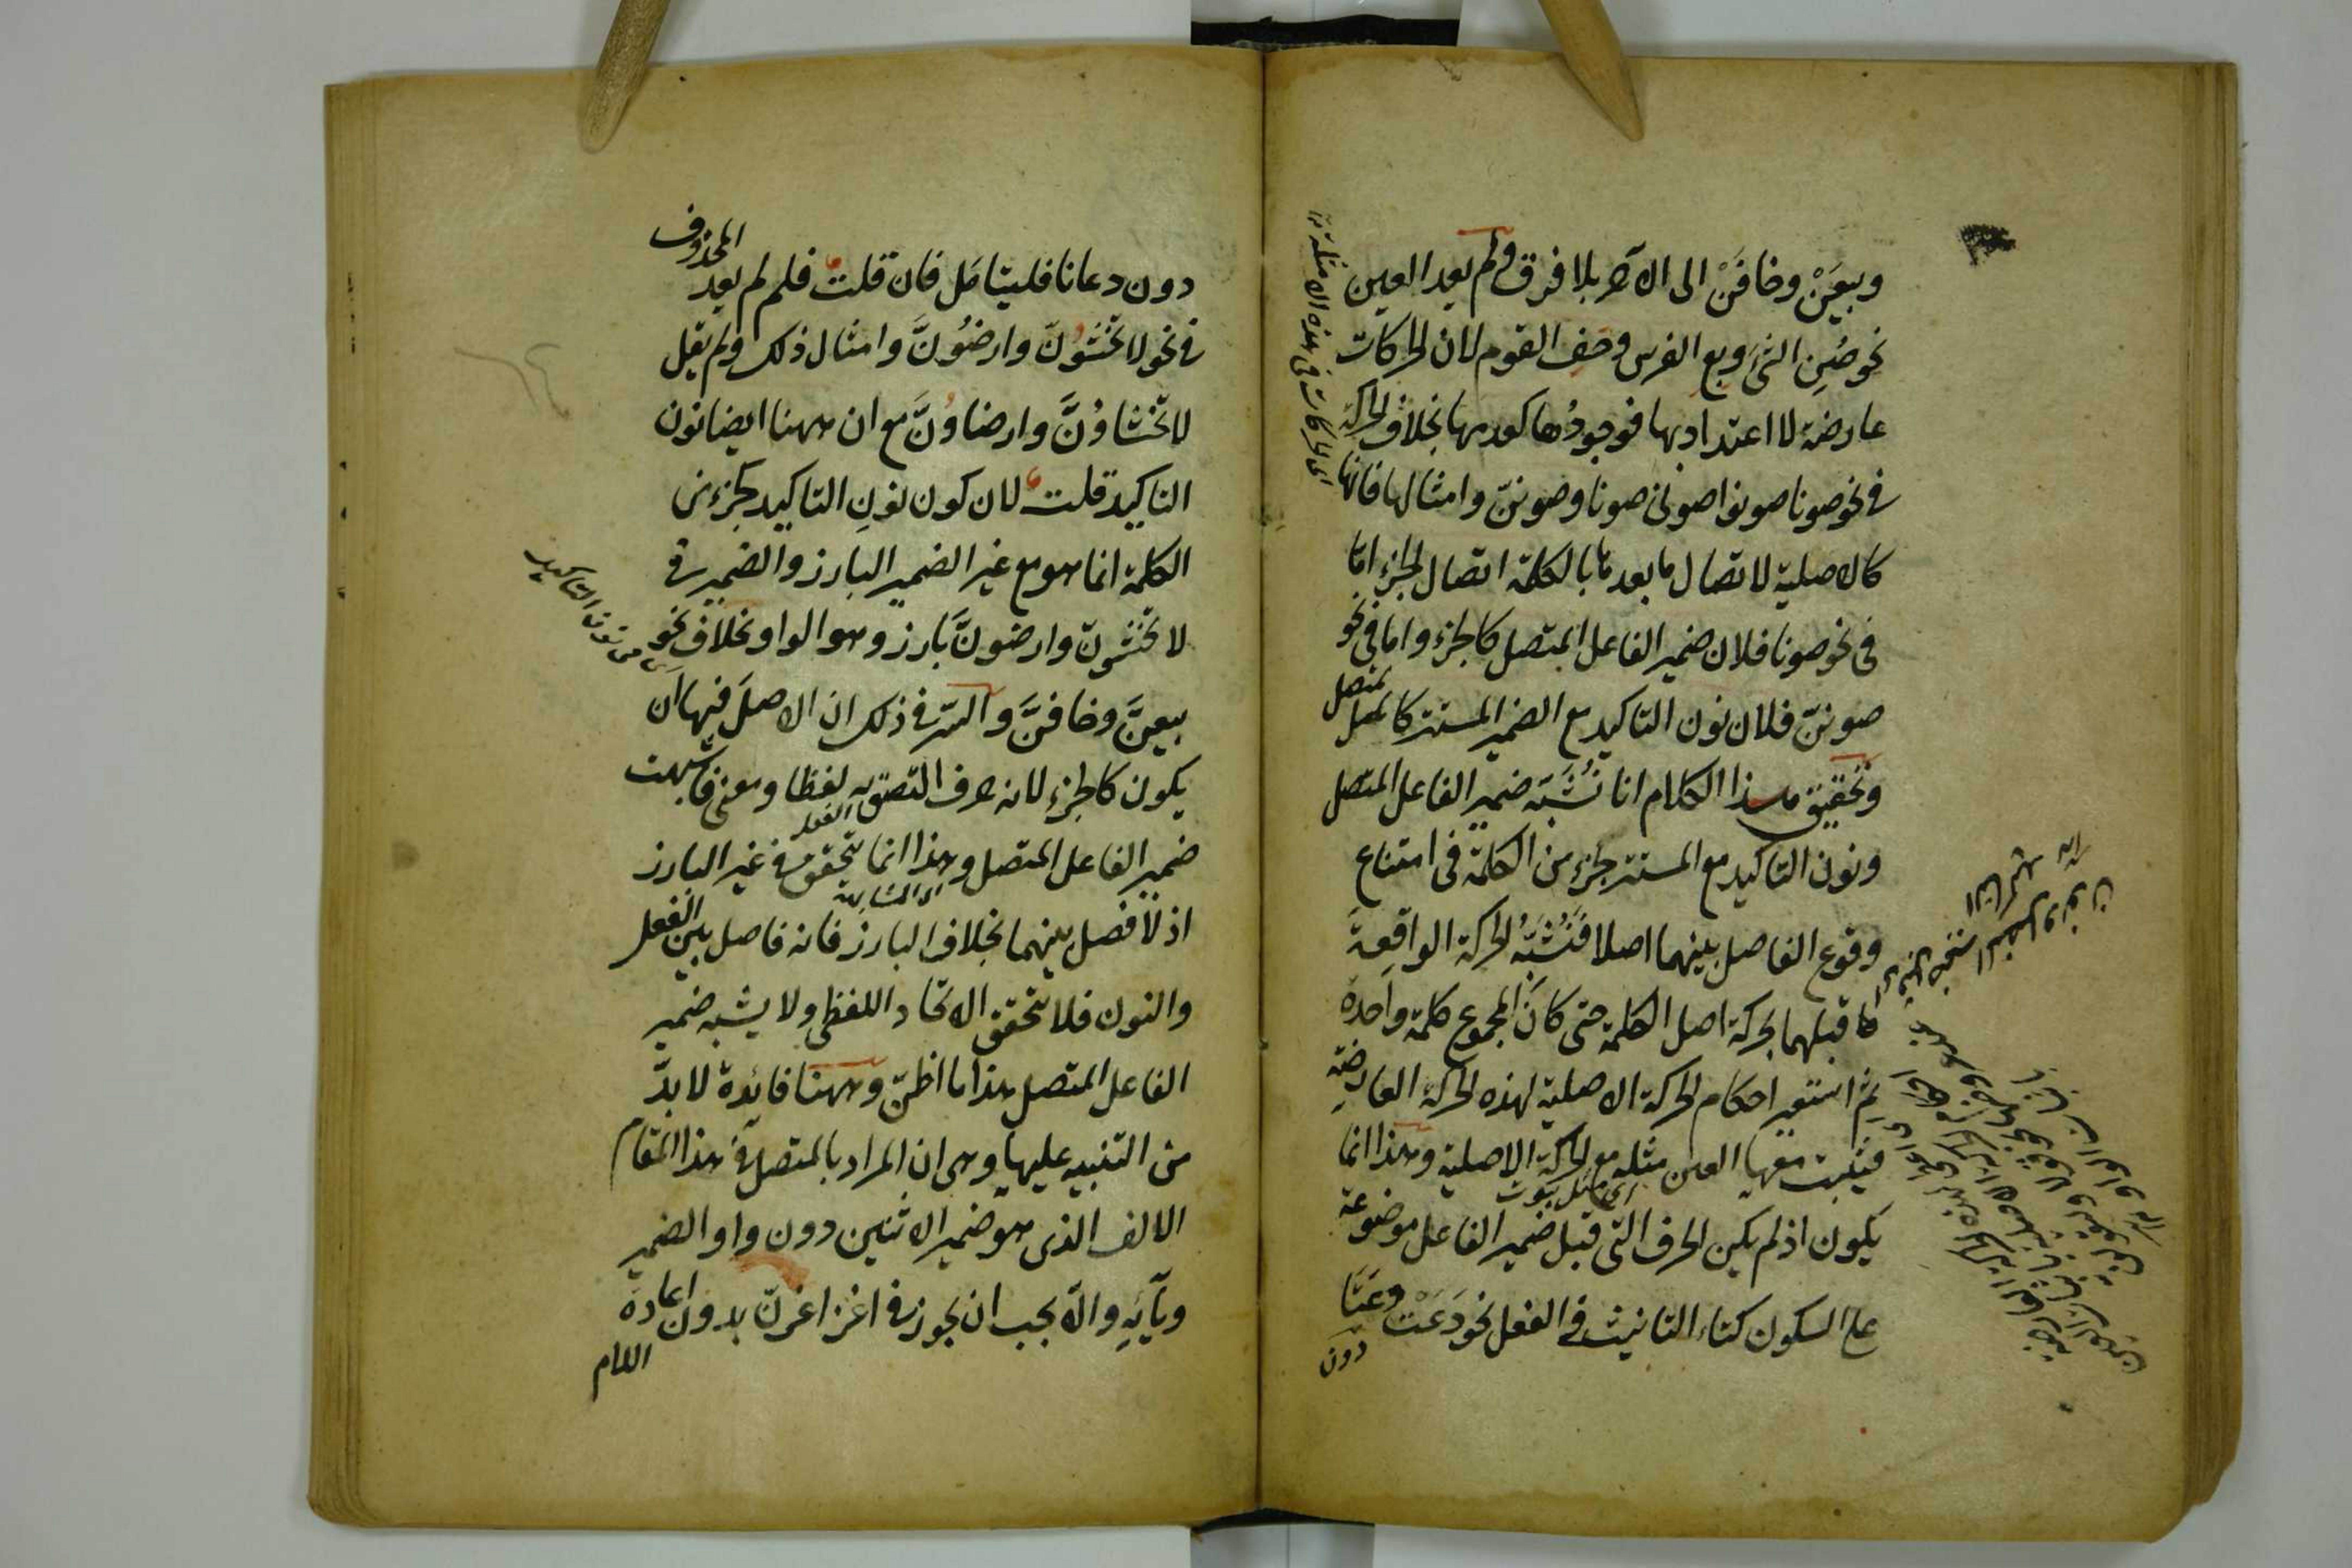 وبيعَنْ وخافَنْ الى الآخر بلا فرق ولم يعد العين
نحو صُنِ الشئَ وبع الفرس وخف القوم لان الحركات
عارضة لا اعتداد بها فوجودُها كعدمها بخلاف الحركة
في نحو صونا صونوا صونى صونا وصوننّ وامثالها فانها
كالاصلية لاتصال ما بعدها بالكلمة اتصال الجزء اما
فى نحو صونا فلان ضمير الفاعل المتصل كالجزء واما فى نحو
صوننّ فلان نون التاكيد مع الضمير المستتر كالمتصل
وتحقيق هذا الكلام انا نُشَبّه ضمير الفاعل المتصل
ونون التاكيد مع المستتر بجزء من الكلمة فى امتناع
وقوع الفاصل بينهما اصلا فَنُشَبّهُ الحركة الواقعةَ
ما قبلهما بحركة اصل الكلمة حتى كانّ المجموع كلمة واحدة
ثم استعير احكام الحركة الاصلية لهذه الحركة العارضة
فيثبت معها العين مثله مع الحركة الاصلية وهذا انما
يكون اذ لم يكن الحرف التى قبل ضمير الفاعل موضوعة
على السكون كتاء التانيث في الفعل نحو دَعَتْ دَعَتَا
دون
اى الحركات فى هذه الامثلة
دون دعاتا فليتامّل فان قلت فلم لم يعد المحذوف
في نحو لا تخشَوُنّ وارضَوُنَّ وامثال ذلك ولم يقل
لا تخشاوُنَّ وارضاوُنَّ مع ان ههنا ايضا نون
التاكيد قلت لان كون نونِ التاكيد كجزء من
الكلمة انما هو مع غير الضمير البارز والضمير في
لا تخشونّ وارضونَّ بارز وهو الواو بخلاف نحو
بيعنَّ وخافنَّ والسّر في ذلك ان الاصل فيها ان
يكون كالجزء لانه حرف التصق به لفظا ومعنى فاشبهت
ضمير الفاعل المتصل وهذا انما يتحقق في غير البارز
اذ لا فصل بينهما بخلاف البارز فانه فاصل بين الفعل
والنون فلا تحقق الاتحاد اللفظى ولا يشبه ضمير
الفاعل المتصل هذا ما اظنّ وههنا فائدة لا بدّ
من التنبيه عليها وهى ان المراد بالمتصل في هذا المقام
الالف الذى هو ضمير الاثنين دون واو الضمير
ويآئِهِ والّا يجب ان يجوز في اغز اغزنّ بدون اعادة
اللام